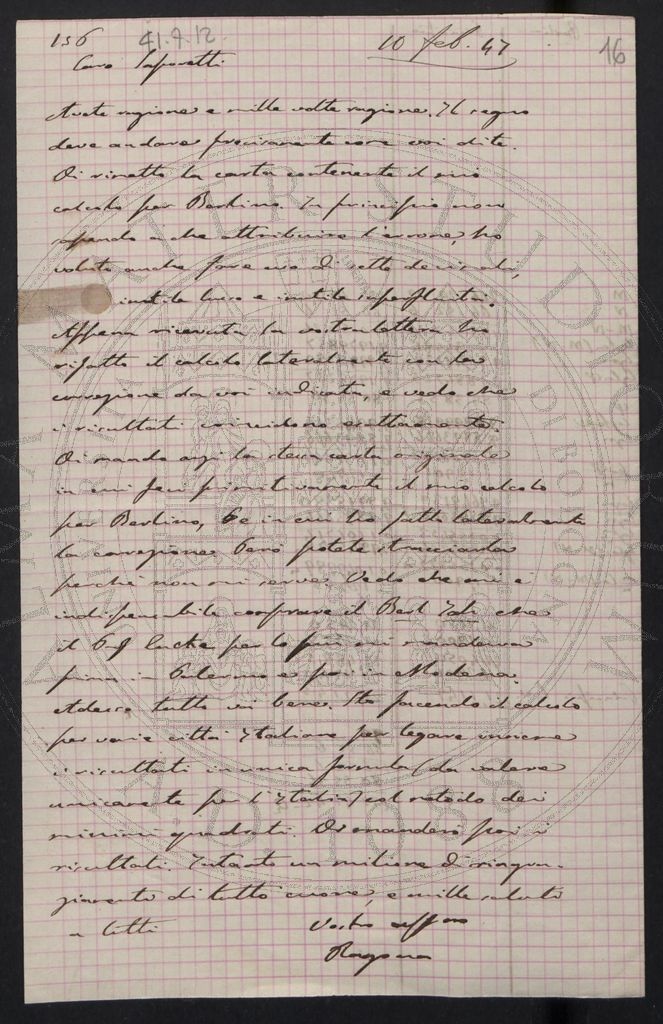 156 41.9.12 10 feb. 47 16
Caro Saporetti
Avete ragione e mille volte ragione. Il segno
deve andare precisamente come voi dite.
Vi rimetto la carta contenente il mio
calcolo per Berlino. In principio non
sapendo a che attribuire l'errore, ho
voluto anche fare uso di sette decimali,
inutile lusso e inutile superfluità.
Appena ricevuta la vostra lettera ho
rifatto il calcolo lateralmente con la
correzione da voi indicata, e vedo che
i risultati coincidono esattamente.
Vi mando oggi la stessa carta originale
in cui feci primitivamente il mio calcolo
per Berlino, e in cui ho fatto lateralmente
la correzione. Però potete stracciarla
perchè non mi serve. Vedo che mi è
indispensabile comprare il Berl che
il per lo più mi mandava
prima in Palermo e poi in Modena.
Adesso tutto va bene. Sto facendo il calcolo
per varie città Italiane per legare insieme
i risultati in unica formula (da valere
unicamente per l'Italia) col metodo dei
minimi quadrati. Vi manderò poi i
risultati. Intanto un milione di ringra-
ziamenti di tutto cuore, e mille saluti
a tutti
Vostro affmo
Ragona